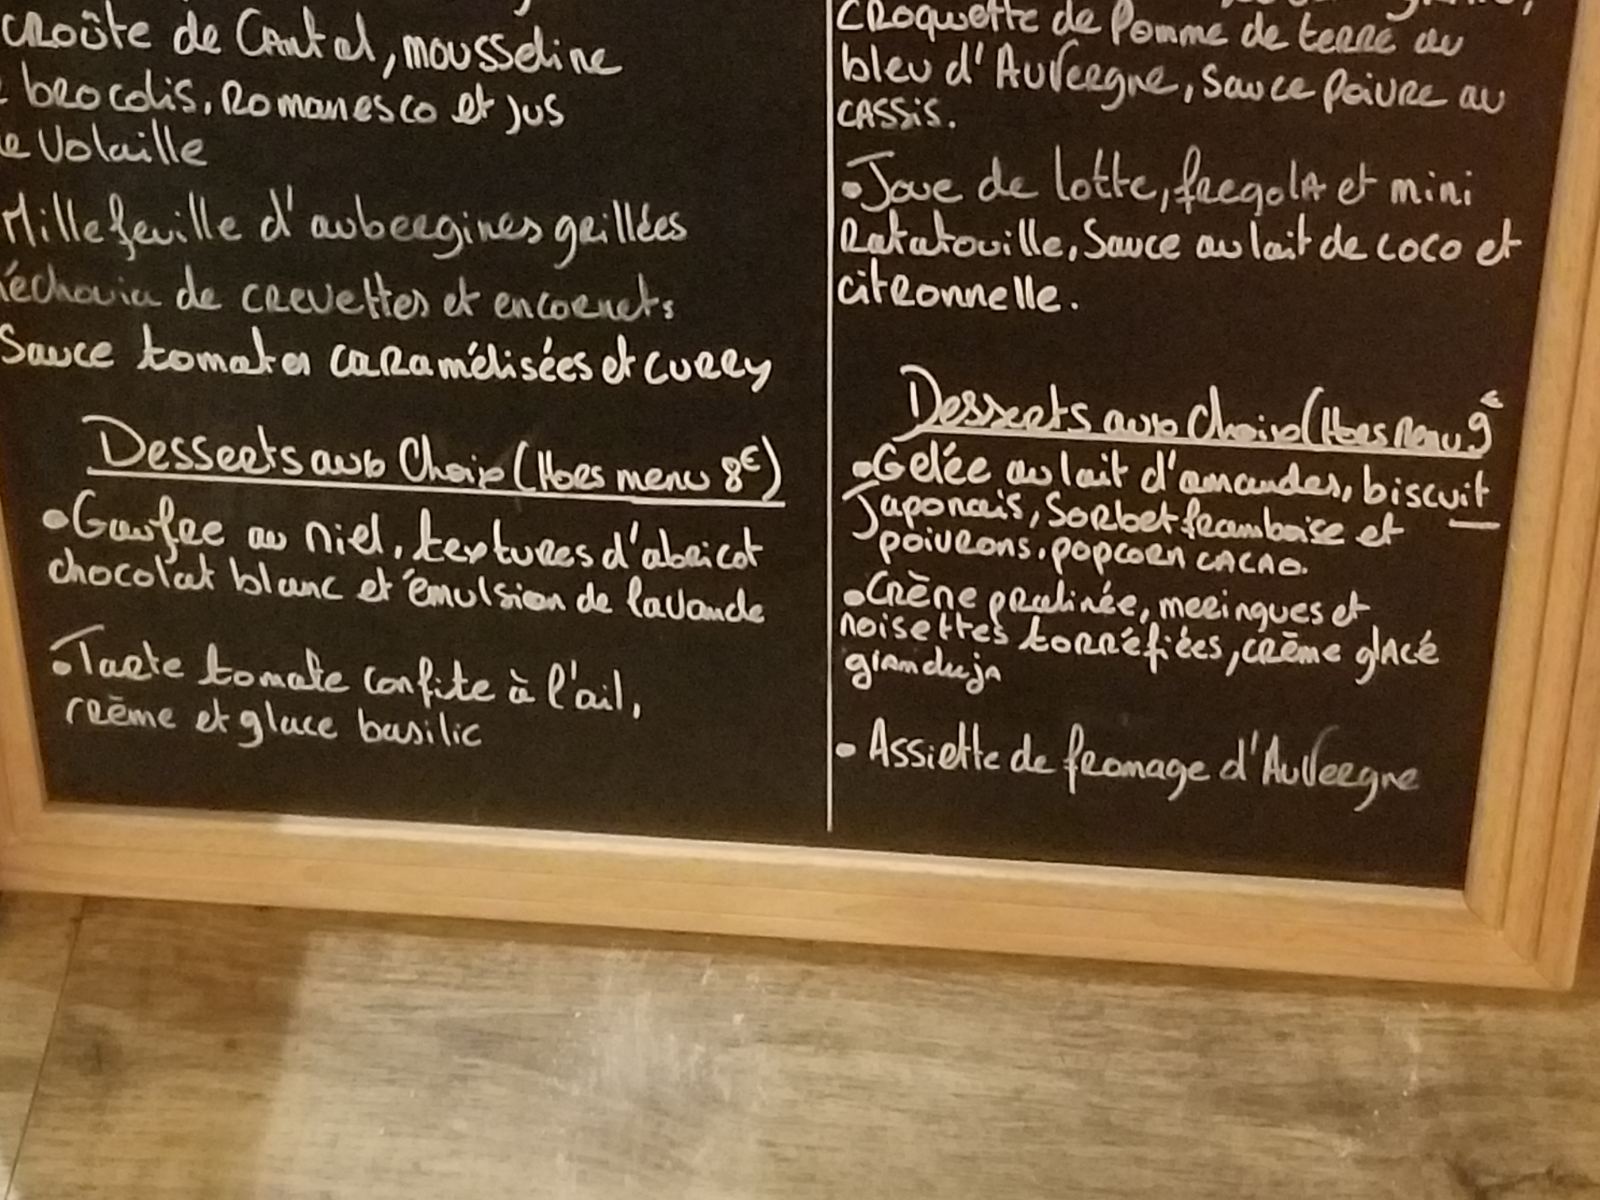 croûte de Cantal, mousseline
brocolis, Romanesco et jus
Volaille
Millefeuille d'aubergines grillées
de crevettes et encornets
Sauce tomates caramélisées et curry
Desserts aux Choix (Hors menu 8€)
•Gaufre au miel, textures d'abricot
chocolat blanc et émulsion de lavande
•Tarte tomate confite à l'ail,
crème et glace basilic
Croquette de Pomme de terre au
bleu d'Auvergne, Sauce Poivre au
cassis.
•Joue de lotte, fregola et mini
Ratatouille, Sauce au lait de coco et
citronnelle.
Desserts aux Choix (Hors Menu 9€
•Gelée au lait d'amandes, biscuit
Japonais, Sorbet framboise et
poivrons, popcorn cacao.
•Crème pralinée, meringues et
noisettes torréfiées, crème glacé
gianduja
• Assiette de fromage d'Auvergne